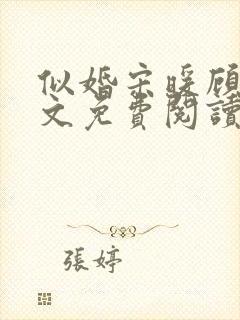 似婚宋暖顾
文免費閱讀
張婷